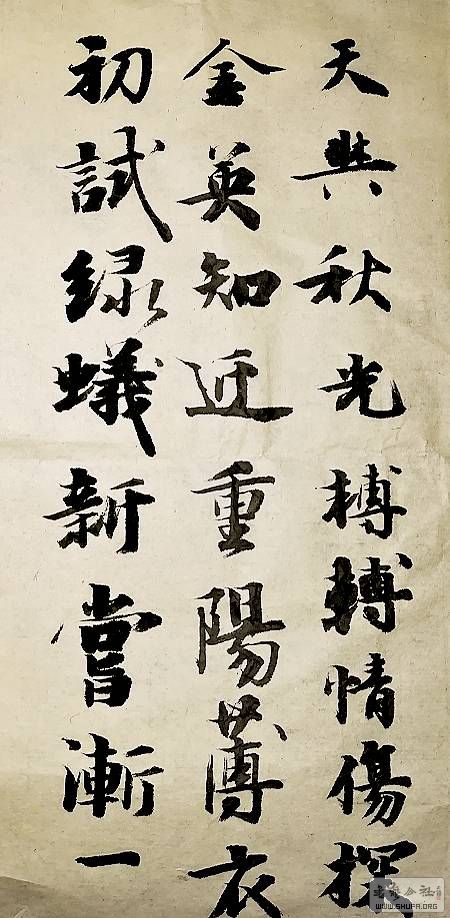 天與秋光轉轉情傷探
金英知近重陽薄衣
初試緑蟻新嘗漸一
WWW.SHUFA.ORG